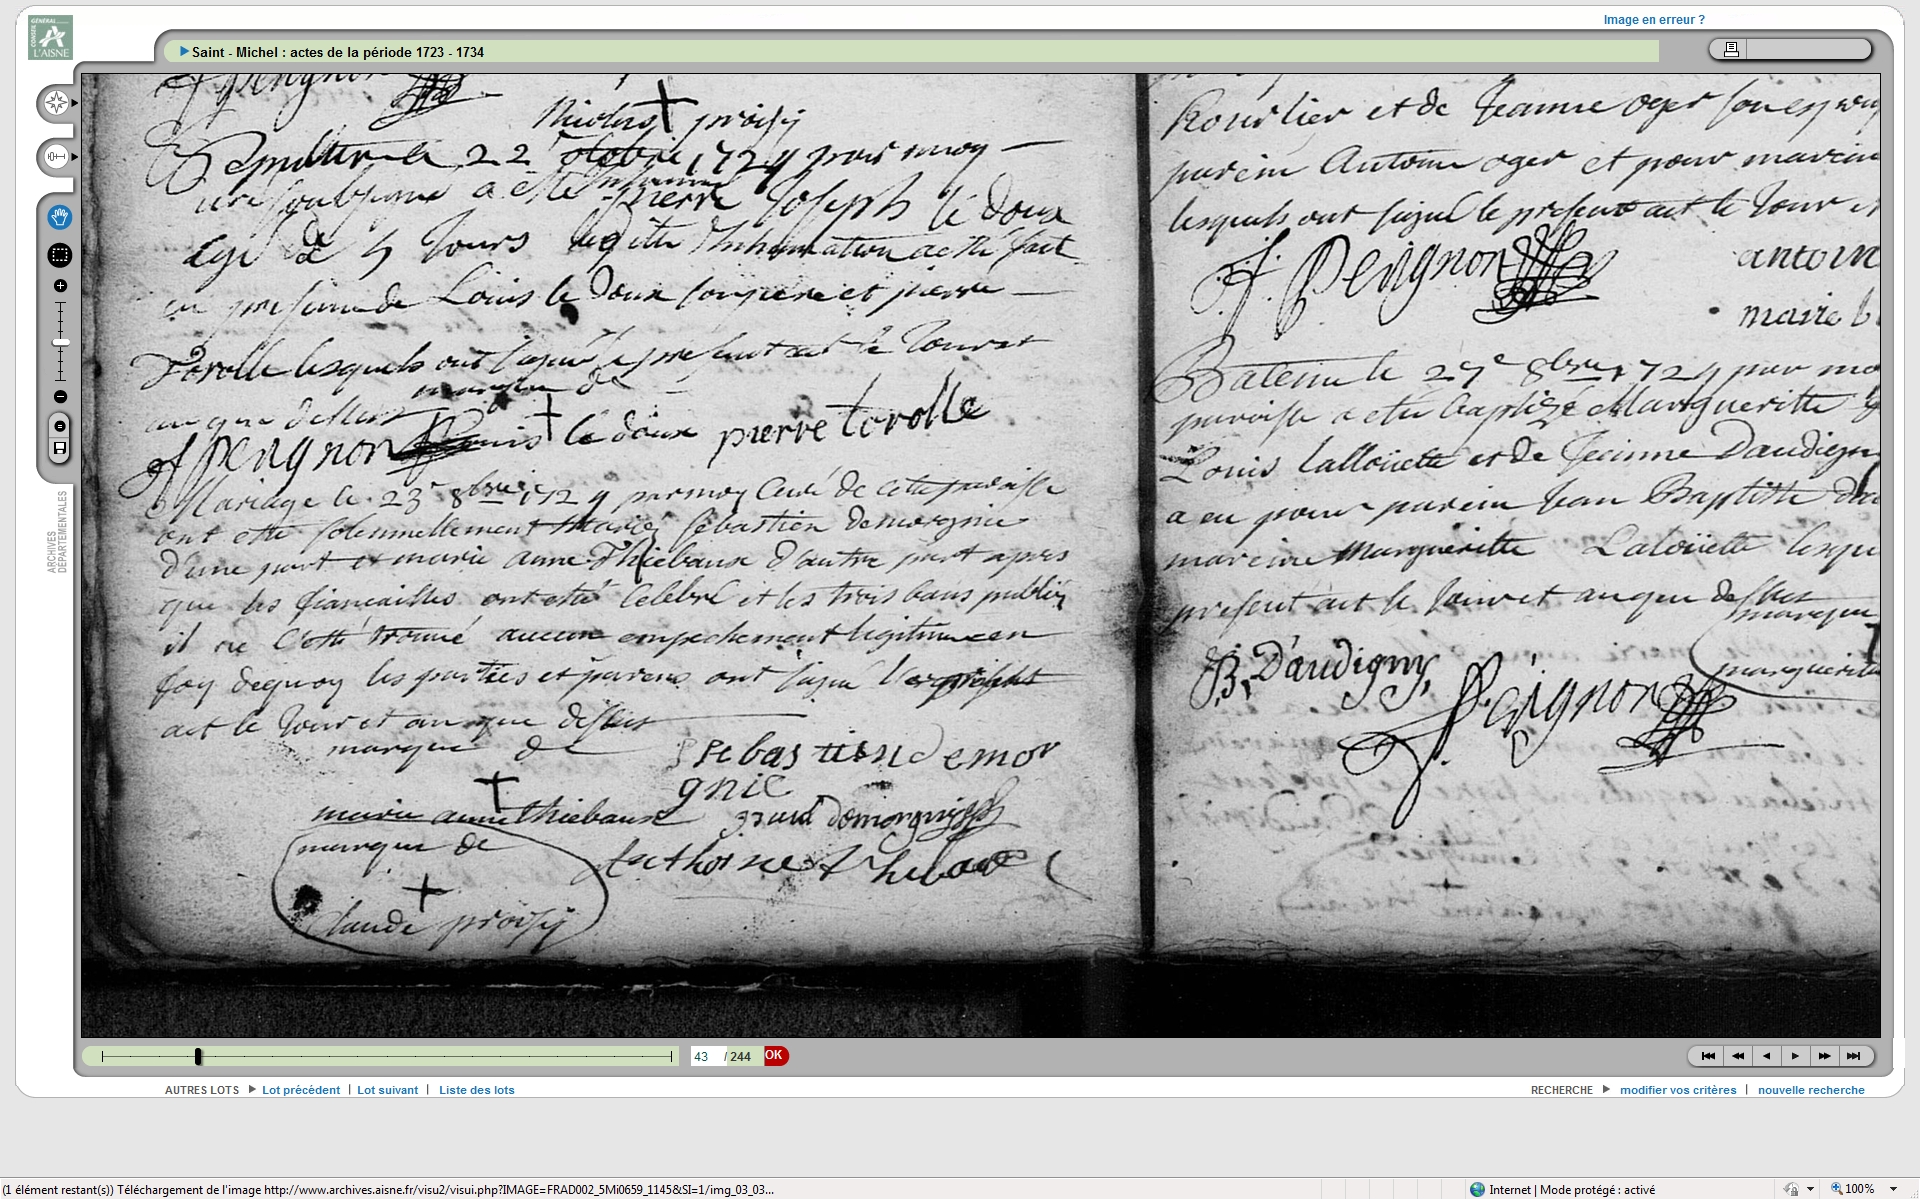 Image en erreur ?
CONSEIL GÉNÉRAL
L'AISNE
Saint - Michel : actes de la période 1723 - 1734
Nicolas proisy
Sepulture le 22e octobre 1724 par moy
curé soubsigné a esté inhumé pierre Joseph le doux
agé de 4 Jours laditte Inhumation a esté fait
en presence de Louis le doux son pere et pierre
torolle lesquels ont signé le present act le Jour et
an que dessus marque de
A Perignon Louis le doux pierre torolle
Mariage le 23e 8bre 1724 par moy Curé de cette paroisse
ont esté solemnellement mariés sebastien demorgnie
d'une part et marie anne Thiebaux d'autre part apres
que les fiancailles ont esté Celebré et les trois bans publiés
il ne s'est trouvé aucun empechement legitime en
foy dequoy les parties et parens ont signé le present
act le Jour et an que dessus
marque de sebastien demor
gnie
marie anne thiebaux
marque de
Claude proisy
Kourlier et de Jeanne oger
parein Antoine oger et pour mareine
lesquels ont signé le present act le Jour et
Perignon antoin
marie
Batême le 27e 8bre 1724 par mo
paroisse a esté baptizé Margueritte
Louis Lalloüette et de Jeanne Daudigny
a eu pour parein Jean Baptiste
mareine Margueritte Laloüette lesqu
present act le Jour et an que dessus
marque
B. Daudigny Perignon
marguerite
ARCHIVES
DÉPARTEMENTALES
43 / 244 OK
AUTRES LOTS Lot précédent | Lot suivant | Liste des lots
RECHERCHE modifier vos critères | nouvelle recherche
(1 élément restant(s)) Téléchargement de l'image http://www.archives.aisne.fr/visu2/visui.php?IMAGE=FRAD002_5Mi0659_1145&SI=1/img_03_03...
Internet | Mode protégé : activé
100%